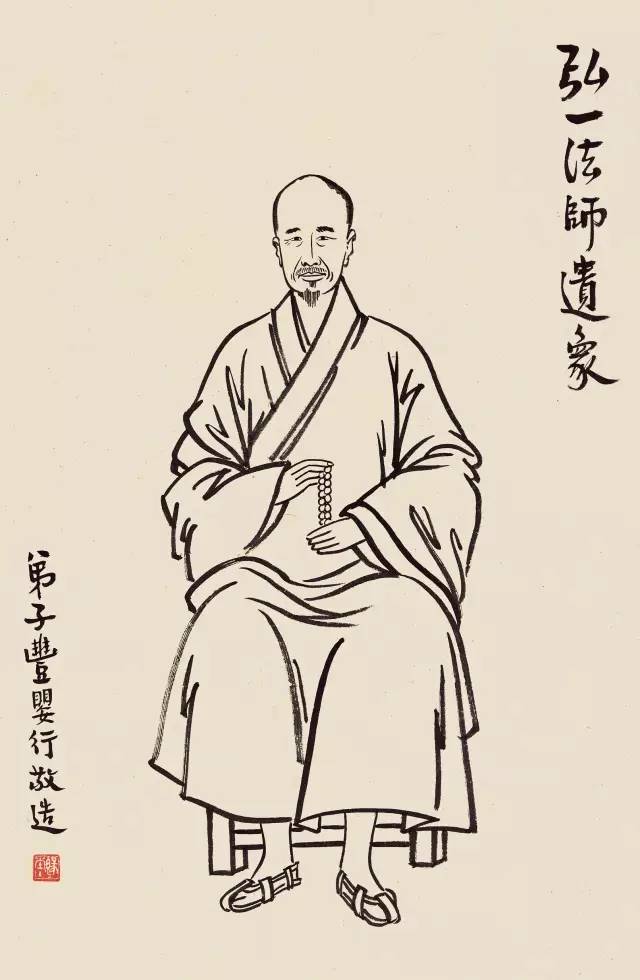 弘一法師遺象
弟子豐嬰行敬造